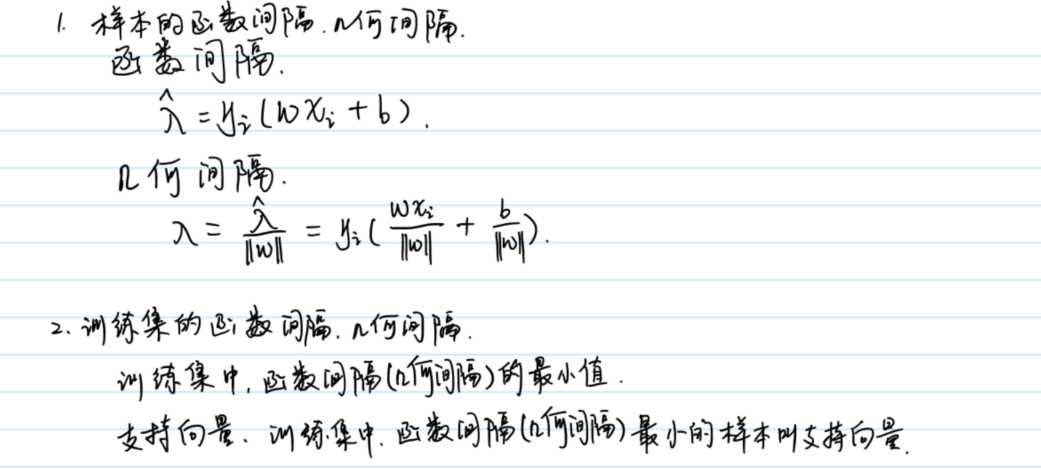 1. 样本的函数间隔.几何间隔.
函数间隔.
λ̂ = yᵢ(wxᵢ + b).
几何间隔.
λ = λ̂/‖w‖ = yᵢ(wxᵢ/‖w‖ + b/‖w‖).
2. 训练集的函数间隔.几何间隔.
训练集中,函数间隔(几何间隔)的最小值.
支持向量.训练集中.函数间隔(几何间隔)最小的样本叫支持向量.